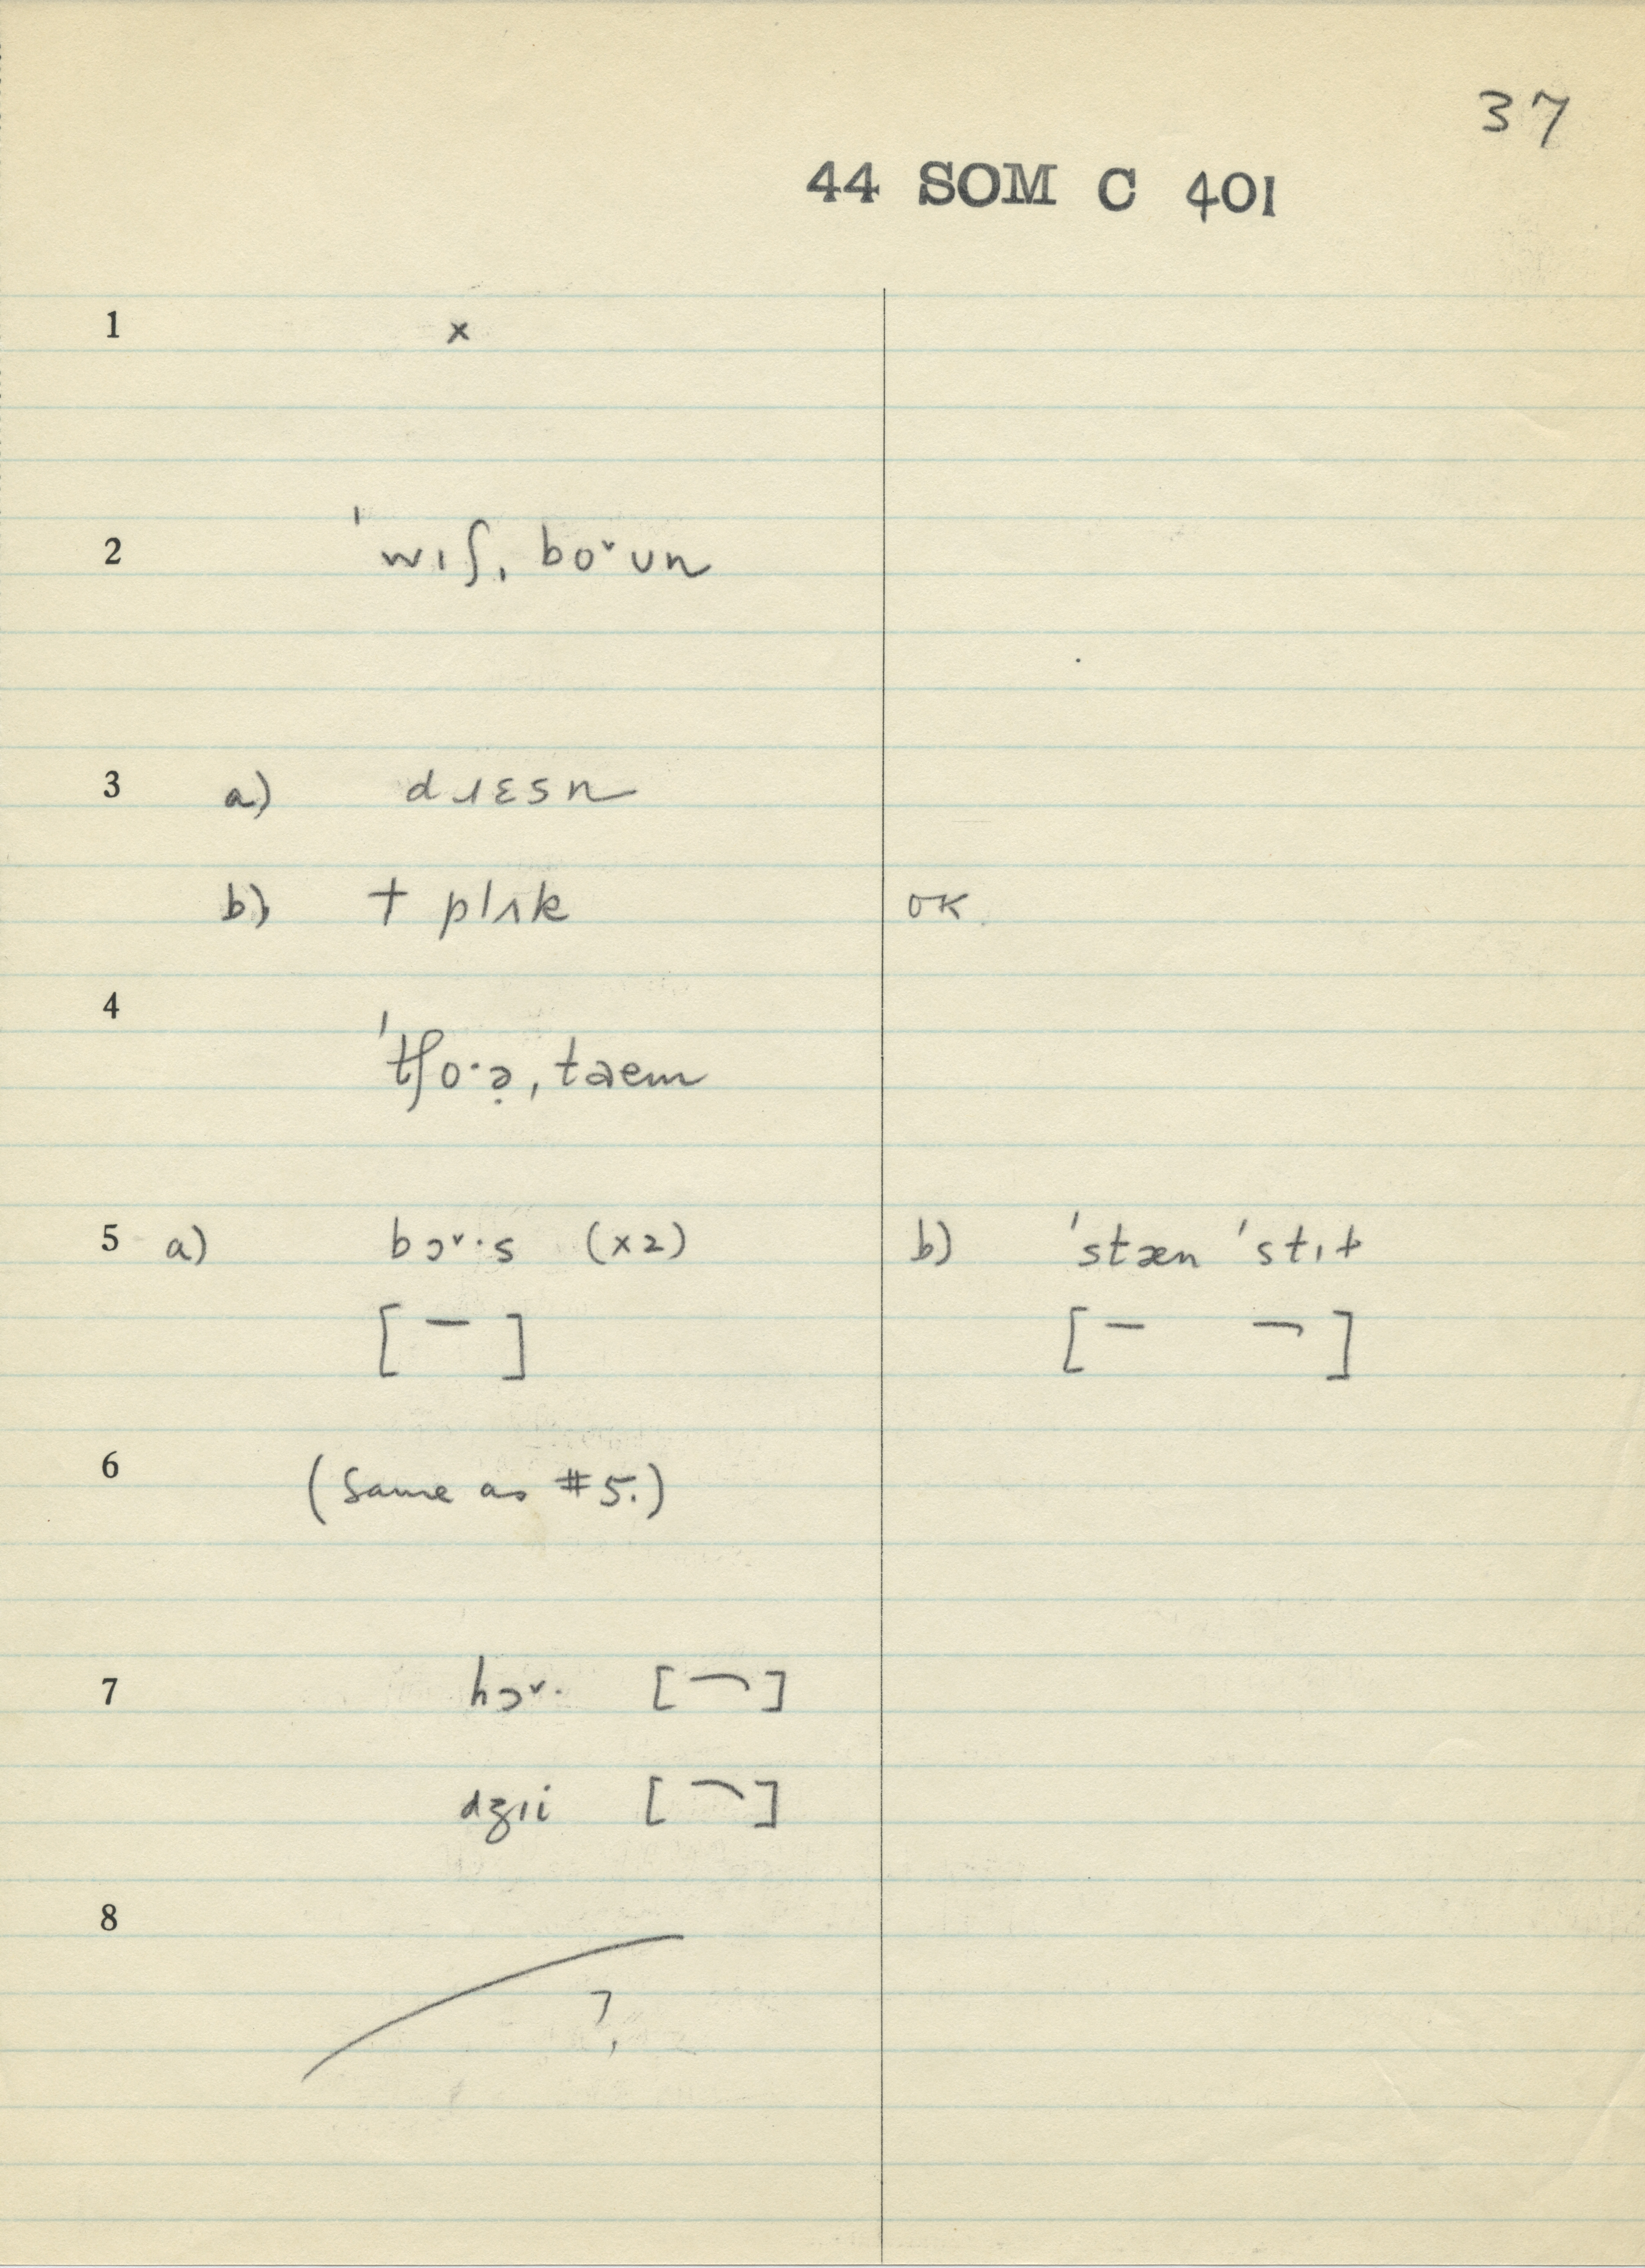 37
44 SOM C 401
1 x
2 ˈwɪʃˌboˇʊn
3 a) dɹɛsn
b) † plʌk OK.
4 ˈtʃo·ə̣ˌtaem
5 a) bɔˇ·s (x2) b) ˈstæn ˈstɪt
[ ¯ ] [ ¯ ¬ ]
6 (Same as #5.)
7 hɔˇ· [ ¬ ]
dʒɪi [ ¬ ]
8 ?